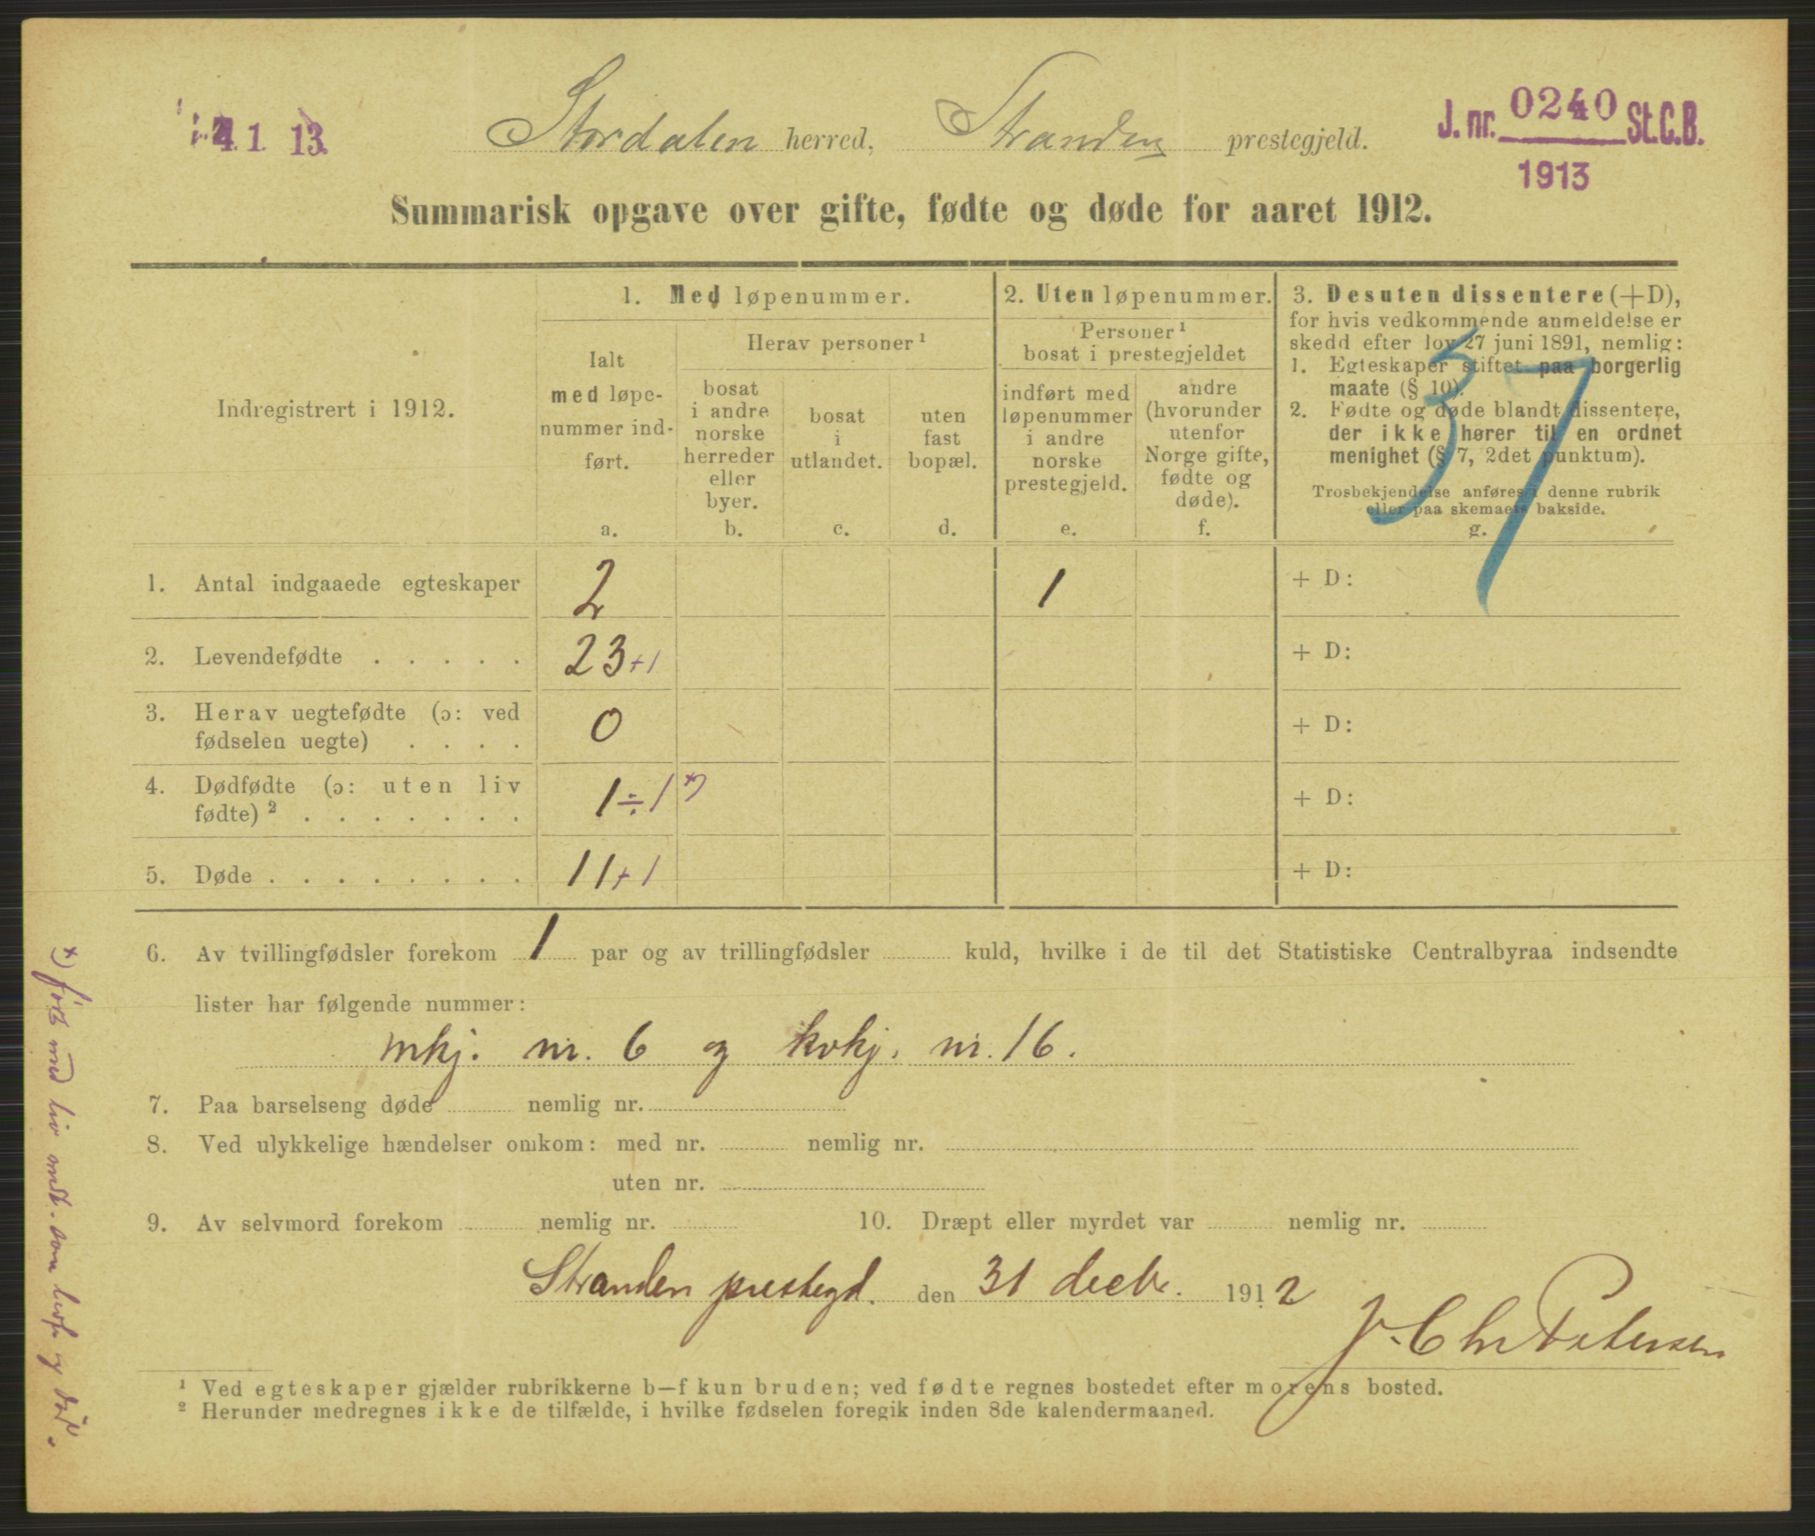 4 1 13.
Stordalen herred, Stranden prestegjeld.
J. nr. 0240 St.C.B.
1913
Summarisk opgave over gifte, fødte og døde for aaret 1912.
37
Indregistrert i 1912.
1. Med løpenummer.
Ialt
med løpe-
nummer ind-
ført.
a.
Herav personer ¹
bosat
i andre
norske
herreder
eller
byer.
b.
bosat
i
utlandet.
c.
uten
fast
bopæl.
d.
2. Uten løpenummer.
Personer ¹
bosat i prestegjeldet
indført med
løpenummer
i andre
norske
prestegjeld.
e.
andre
(hvorunder
utenfor
Norge gifte,
fødte og
døde).
f.
3. Desuten dissentere (+D),
for hvis vedkommende anmeldelse er
skedd efter lov 27 juni 1891, nemlig:
1. Egteskaper stiftet paa borgerlig
maate (§ 10).
2. Fødte og døde blandt dissentere,
der ikke hører til en ordnet
menighet (§ 7, 2det punktum).
Trosbekjendelse anføres i denne rubrik
eller paa skemaets bakside.
g.
1. Antal indgaaede egteskaper 2 1 + D:
2. Levendefødte . . . . . 23 +1 + D:
3. Herav uegtefødte (ɔ: ved
fødselen uegte) . . . . 0 + D:
4. Dødfødte (ɔ: uten liv
fødte) ² . . . . . . . 1 ÷1 *) + D:
5. Døde . . . . . . . . 11 +1 + D:
6. Av tvillingfødsler forekom 1 par og av trillingfødsler kuld, hvilke i de til det Statistiske Centralbyraa indsendte
lister har følgende nummer:
mkj. nr. 6 og kvkj. nr. 16.
7. Paa barselseng døde nemlig nr.
8. Ved ulykkelige hændelser omkom: med nr. nemlig nr.
uten nr.
9. Av selvmord forekom nemlig nr. 10. Dræpt eller myrdet var nemlig nr.
Stranden prestegd. den 31 decbr. 1912
J. Chr Petersen
¹ Ved egteskaper gjælder rubrikkerne b—f kun bruden; ved fødte regnes bostedet efter morens bosted.
² Herunder medregnes ikke de tilfælde, i hvilke fødselen foregik inden 8de kalendermaaned.
*) født med liv medt. som levf. og død.